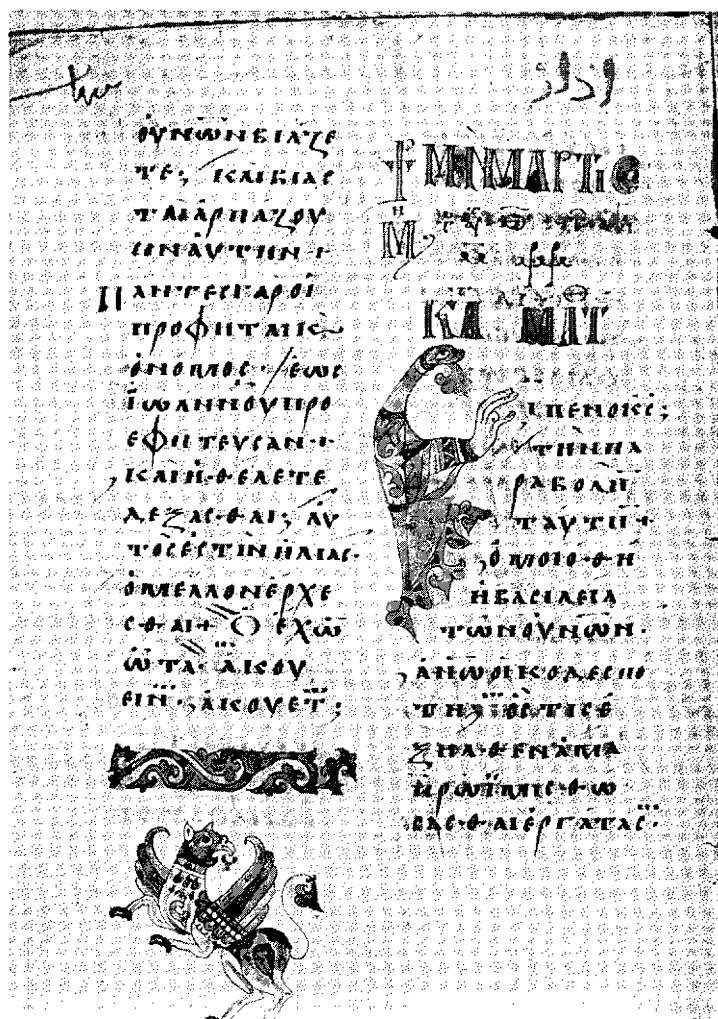 ΟΥΝΩΝΒΙΑΖΕ
ΤΕ· ΚΑΙΒΙΑΣ
ΤΑΙΑΡΠΑΖΟΥ
ΣΙΝΑΥΤΗΝ+
ΠΑΝΤΕΣΓΑΡΟΙ
ΠΡΟΦΗΤΑΙΚ
ΟΝΟΜΟΣ· ΕΩΣ
ΙΩΑΝΝΟΥΠΡΟ
ΕΦΗΤΕΥΣΑΝ+
ΚΑΙΗΘΕΛΕΤΕ
ΔΕΞΑΣΘΑΙ· ΑΥ
ΤΟΣΕΣΤΙΝΗΛΙΑΣ·
ΟΜΕΛΛΩΝΕΡΧΕ
ΣΘΑΙ+ Ο ΕΧΩ
ΩΤΑ· ΑΚΟΥ
ΕΙΝ· ΑΚΟΥΕΤ·
ΜΗΝΙΜΑΡΤΙΩ
ΚΑ ΜΑΤ
ΕΙΠΕΝΟΚΣ·
ΤΗΝΠΑ
ΡΑΒΟΛΗ
ΤΑΥΤΗ+
ΟΜΟΙΩΘΗ
ΗΒΑΣΙΛΕΙΑ
ΤΩΝΟΥΝΩΝ·
ΑΝΩΟΙΚΟΔΕΣΠΟ
ΤΗ ΟΣΤΙΣΕ
ΞΗΛΘΕΝΑΜΑ
ΠΡΩΪΜΙΣΘΩ
ΣΑΣΘΑΙΕΡΓΑΤΑΣ·